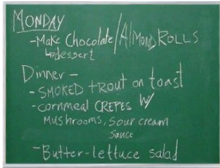 MONDAY
-Make Chocolate/Almond ROLLS
↳dessert
Dinner-
-SMOKED TROUT on toast
-cornmeal CREPES W/
Mushrooms, sour cream
sauce
-Butter-lettuce salad